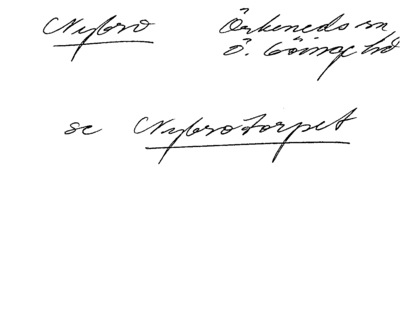 Nybro Örkeneds sn
Ö. Göinge hd
se Nybrotorpet